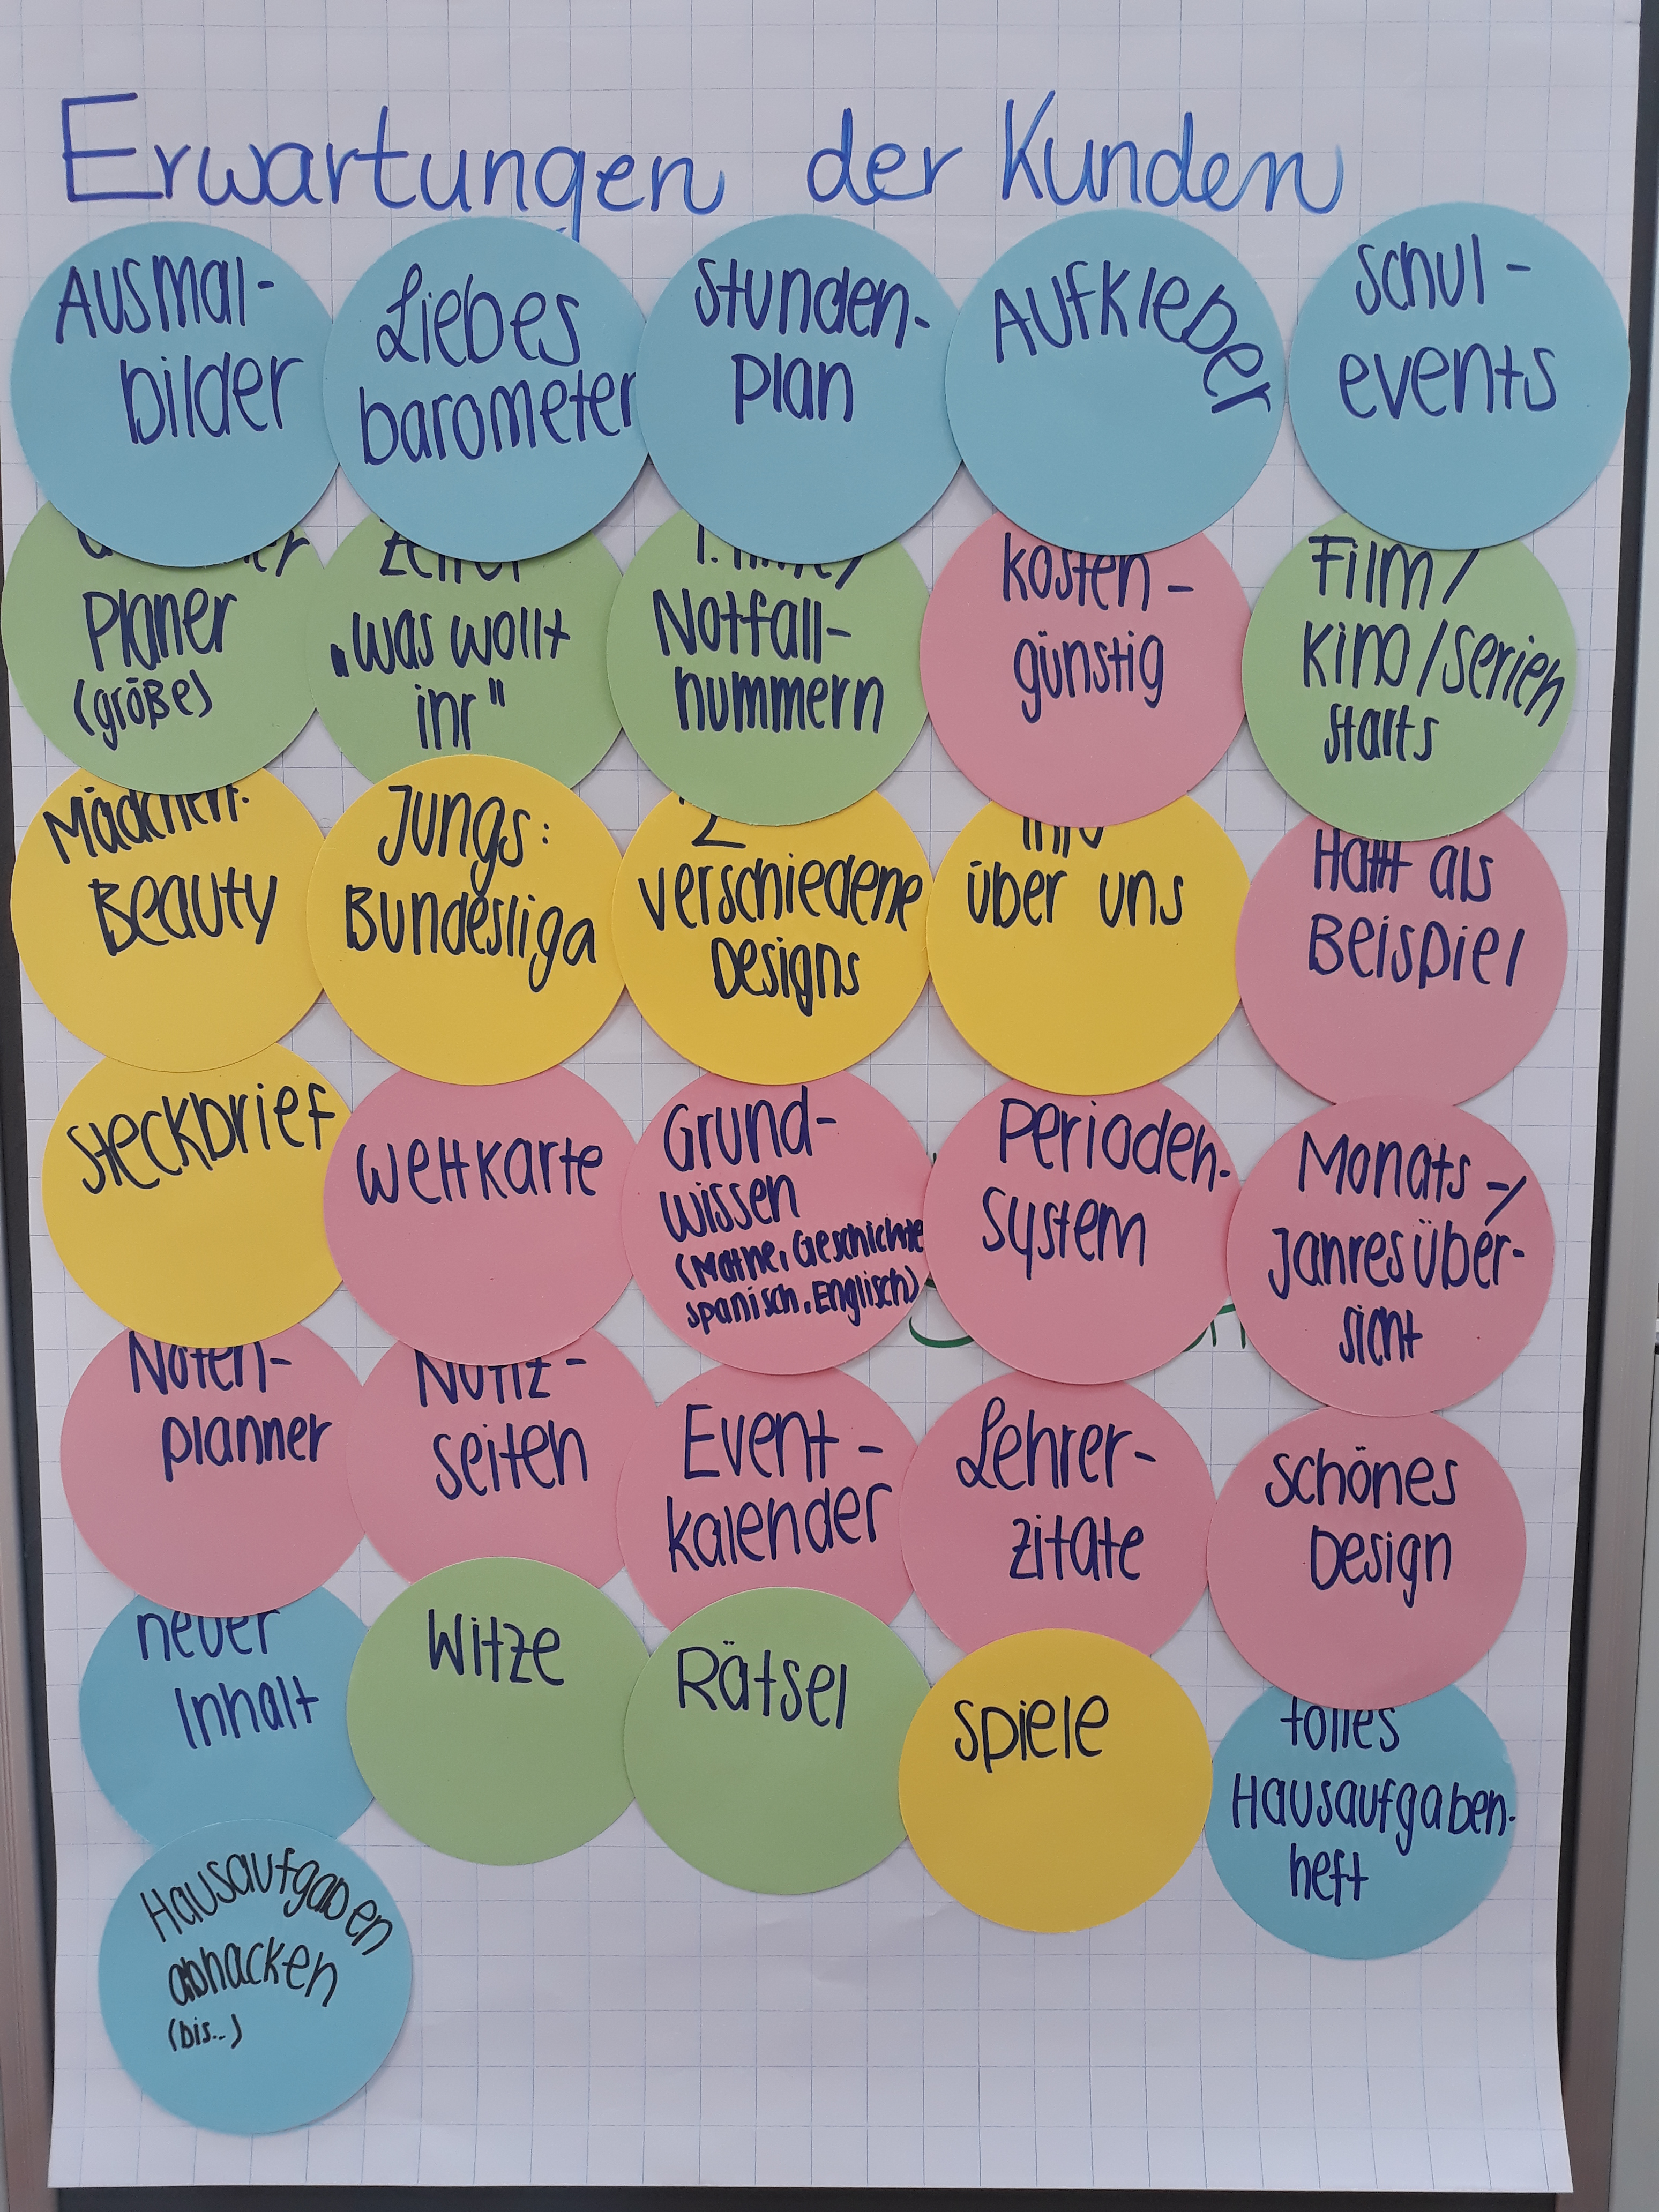 Erwartungen der Kunden
Ausmal-
bilder
Liebes
barometer
Stunden-
plan
Aufkleber
Schul-
events
Planer
(größe)
"was wollt
ihr"
Notfall-
nummern
kosten-
günstig
Film/
Kino/Serien
starts
Mädchen:
Beauty
Jungs:
Bundesliga
2
verschiedene
Designs
Info
über uns
als
Beispiel
Steckbrief
Weltkarte
Grund-
wissen
(Mathe, Geschichte
Spanisch, Englisch)
Perioden-
system
Monats-/
Jahresüber-
sicht
Noten-
planner
Notiz-
seiten
Event-
kalender
Lehrer-
zitate
schönes
Design
neuer
Inhalt
Witze
Rätsel
Spiele
tolles
Hausaufgaben-
heft
Hausaufgaben
abhacken
(bis...)